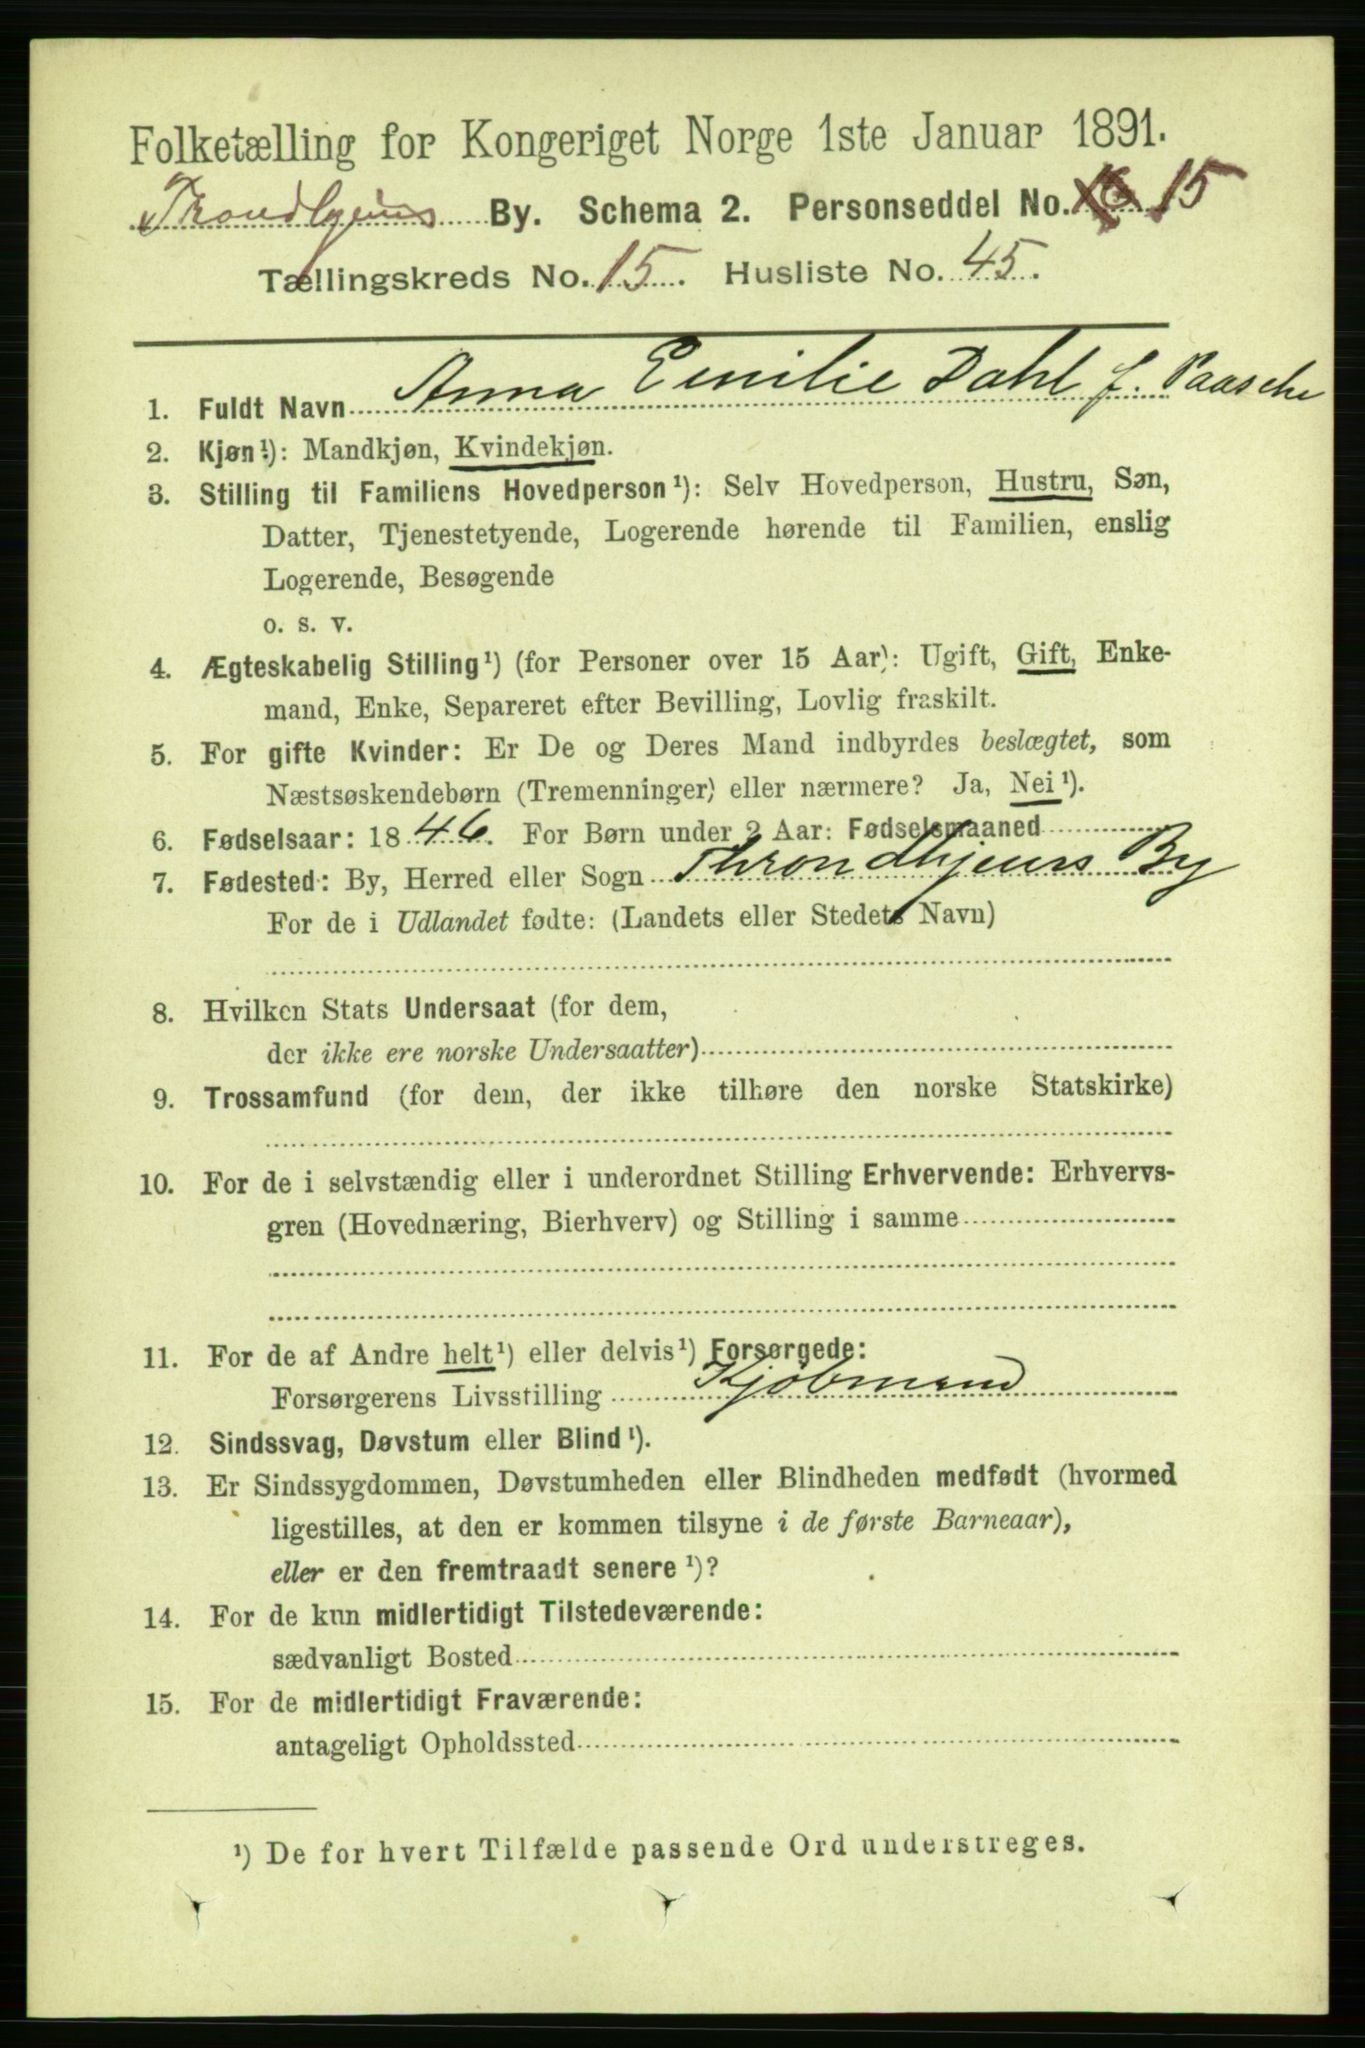 Folketælling for Kongeriget Norge 1ste Januar 1891.
Trondhjems By. Schema 2. Personseddel No. 15
Tællingskreds No. 15. Husliste No. 45.
1. Fuldt Navn Anna Emilie Dahl f. Paasche
2. Kjøn¹): Mandkjøn, Kvindekjøn.
3. Stilling til Familiens Hovedperson¹): Selv Hovedperson, Hustru, Søn,
Datter, Tjenestetyende, Logerende hørende til Familien, enslig
Logerende, Besøgende
o. s. v.
4. Ægteskabelig Stilling¹) (for Personer over 15 Aar): Ugift, Gift, Enke-
mand, Enke, Separeret efter Bevilling, Lovlig fraskilt.
5. For gifte Kvinder: Er De og Deres Mand indbyrdes beslægtet, som
Næstsøskendebørn (Tremenninger) eller nærmere? Ja, Nei¹).
6. Fødselsaar: 1846. For Børn under 2 Aar: Fødselsmaaned
7. Fødested: By, Herred eller Sogn Throndhjems By
For de i Udlandet fødte: (Landets eller Stedets Navn)
8. Hvilken Stats Undersaat (for dem,
der ikke ere norske Undersaatter)
9. Trossamfund (for dem, der ikke tilhøre den norske Statskirke)
10. For de i selvstændig eller i underordnet Stilling Erhvervende: Erhvervs-
gren (Hovednæring, Bierhverv) og Stilling i samme
11. For de af Andre helt¹) eller delvis¹) Forsørgede:
Forsørgerens Livsstilling Kjøbmand
12. Sindssvag, Døvstum eller Blind¹).
13. Er Sindssygdommen, Døvstumheden eller Blindheden medfødt (hvormed
ligestilles, at den er kommen tilsyne i de første Barneaar),
eller er den fremtraadt senere¹)?
14. For de kun midlertidigt Tilstedeværende:
sædvanligt Bosted
15. For de midlertidigt Fraværende:
antageligt Opholdssted
¹) De for hvert Tilfælde passende Ord understreges.